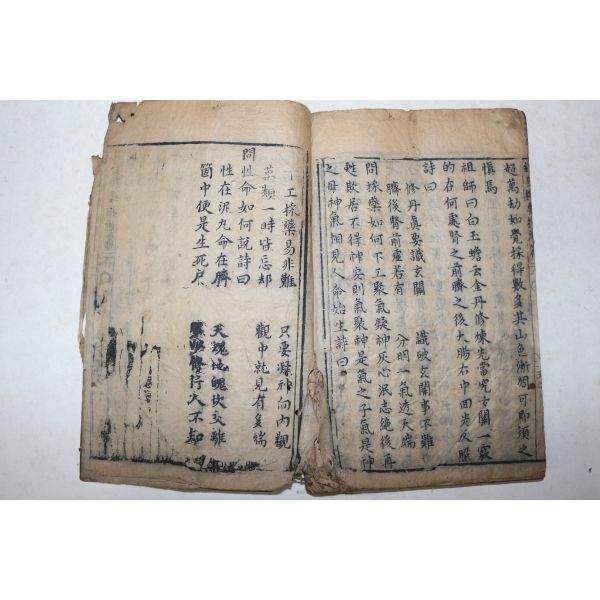 超萬劫如覺採得數多其山色漸凋可即須之
慎焉
祖師曰白玉蟾云金丹修煉先當究玄關一竅
的在何處腎之前臍之後大腸右中回光反照
詩曰
修丹真要識玄關 識破玄關事不難
臍後腎前虛若有 分明一氣透天端
問採藥如何下工聚氣凝神灰心泯志絶後再
甦欺君不得神安則氣聚神是氣之子氣是神
之母神氣相見人命始生詩曰
工採藥易非難 只要凝神向內觀
萬類一時皆忘却 觀中就見有多端
問性命如何説詩曰
性在泥丸命在臍 天魂地魄坎交離
箇中便是生死戶 修行人不知